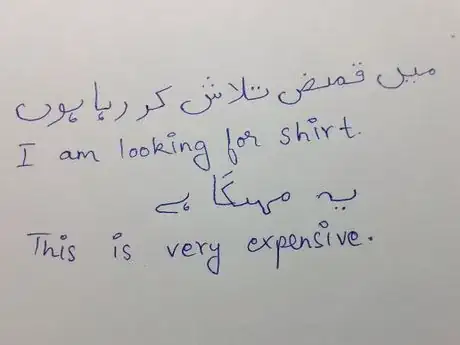 میں قمیض تلاش کر رہا ہوں
I am looking for shirt.
یہ مہنگا ہے
This is very expensive.